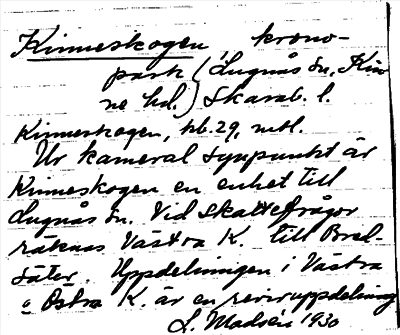 Kinneskogen krono-
park (Lugnås sn, Kin
ne hd.) Skarab. l.
Kinneskogen, kb. 29, mtl.
Ur kameral synpunkt är
Kinneskogen en enhet till
Lugnås sn. Vid skattefrågor
räknas Västra K. till Brel-
säter. Uppdelningen i Västra
o Östra K. är en reviruppdelning
L. Madsén 1930